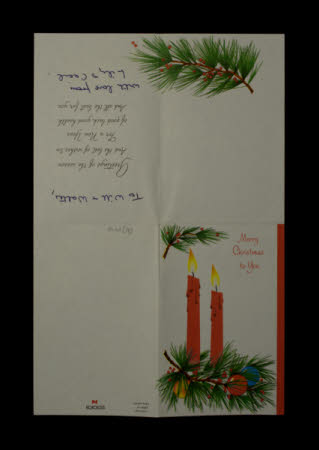 Merry
Christmas
to You
To Will & Walter,
Greetings of the season
And the best of wishes, too
For a New Year
of good luck, good health
And all the best for you
With love from
Lily & Carol.